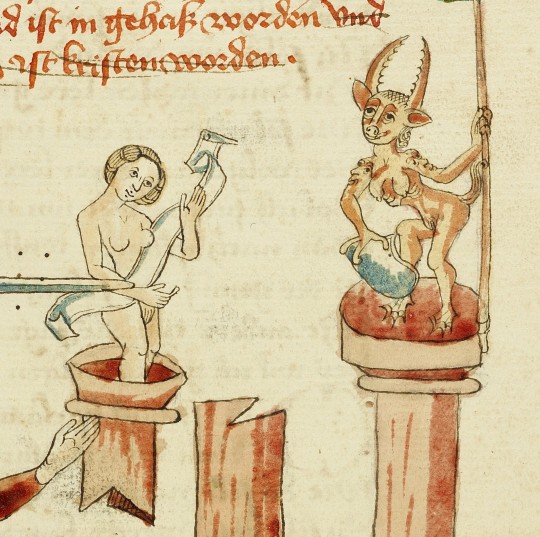 d ist in gehaß worden vnd
ist kristen worden.